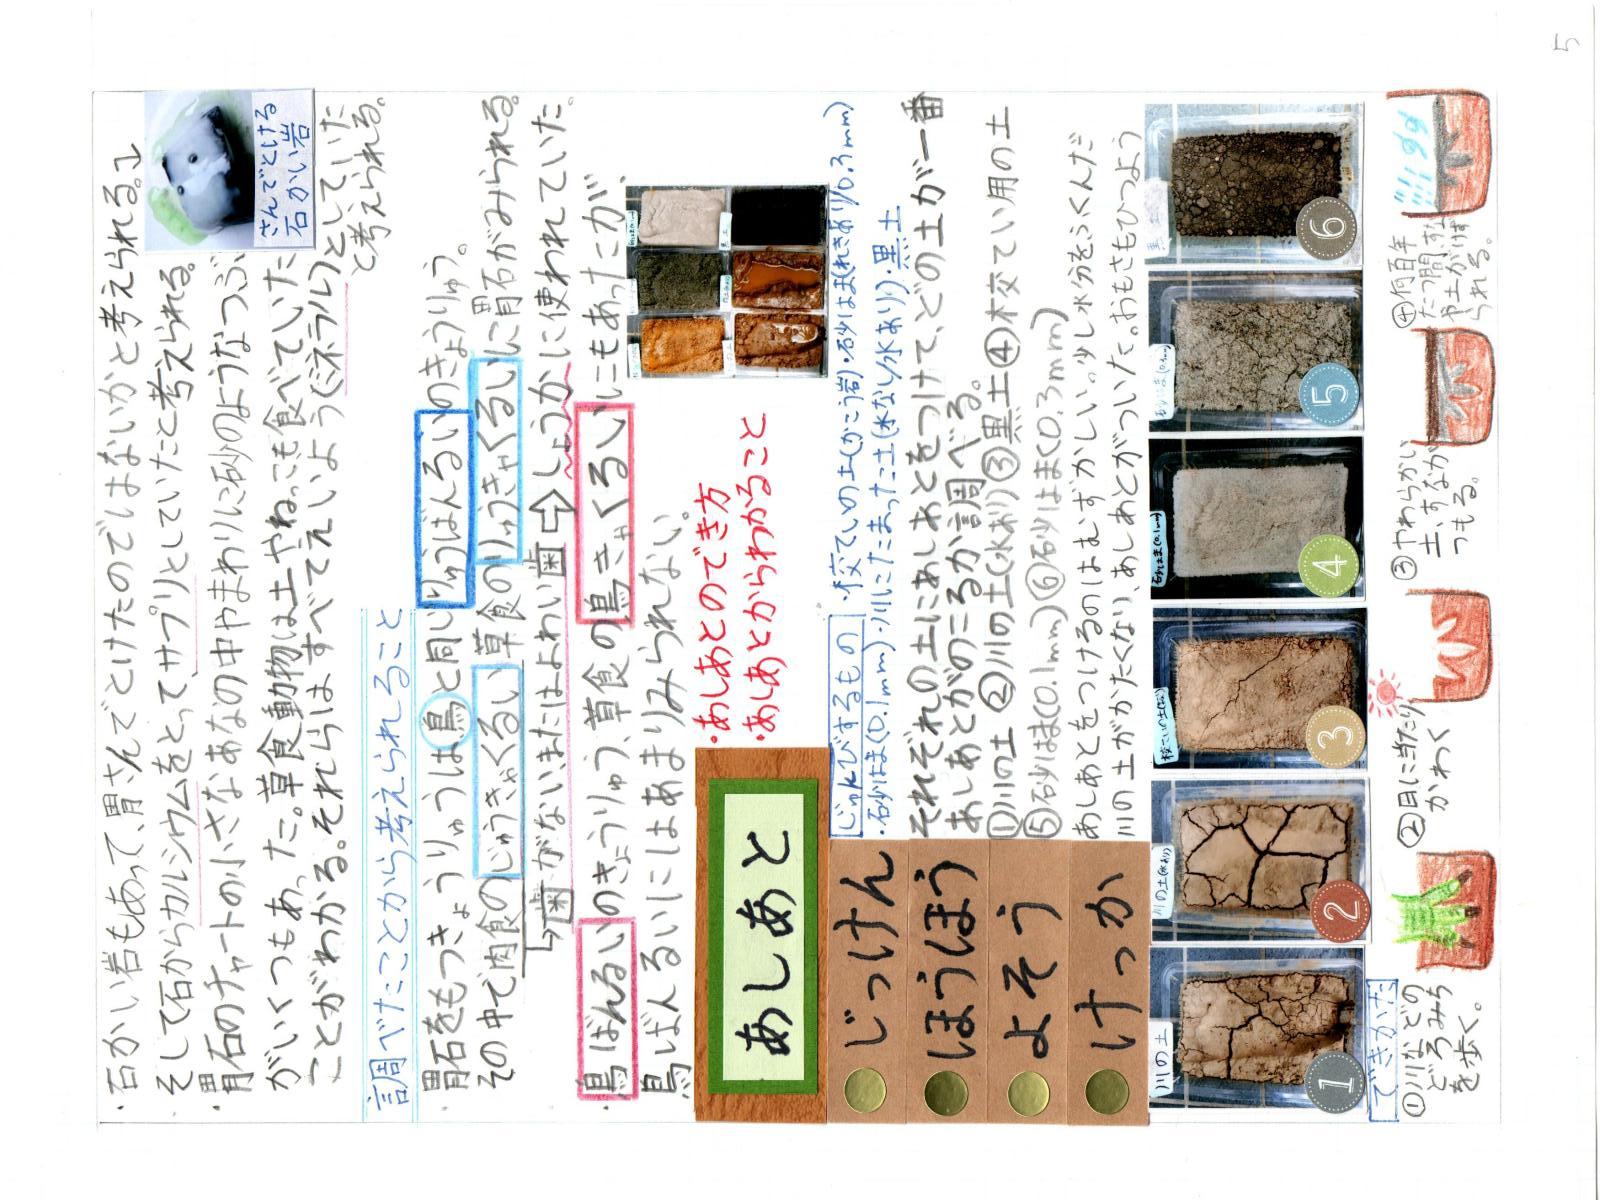 5
・石かい岩もあって、胃さんでとけたのではないかと考えられる。」
そして石からカルシウムをとって、サプリとしていたと考えられる。
・胃石のチャートの小さなあなの中やまわりに砂のようなつぶ
がいくつもあった。草食動物は土やねっこも食べていた
ことがわかる。それらはすべてえいよう(ミネラル)としていた
と考えられる。
さんでとける
石かい岩
調べたことから考えられること
・胃石をもつきょうりゅうは鳥と同じりゅうばんるいのきょうりゅう。
その中で肉食のじゅうきゃくるい、草食のりゅうきゃくるいに胃石がみられる。
歯がない、またはよわい歯⇨しょうかに使われていた。
・鳥ばんるいのきょうりゅう、草食の鳥きゃくるいにもあったが、
鳥ばんるいにはあまりみられない。
あしあと
・あしあとのでき方
・あしあとからわかること
じっけん
じゅんびするもの
・校ていの土(かこう岩)・砂はま(れきあり/0.3mm)
・砂はま(0.1mm)・川にたまった土(水なし/水あり)・黒土
ほうほう
それぞれの土にあしあとをつけて、どの土が一番
あしあとがのこるか調べる。
よそう
①川の土 ②川の土(水あり) ③黒土 ④校てい用の土
⑤砂はま(0.1mm) ⑥砂はま(0.3mm)
けっか
あしあとをつけるのはむずかしい。少し水分をふくんだ
川の土がかたくなり、あしあとがついた。おもさもひつよう
川の土
1
川の土(水あり)
2
校ていの土
3
砂はま(0.1mm)
4
砂はま(0.3mm)
5
黒
6
できかた
①川などの
どろみち
を歩く。
②日に当たり
かわく
③やわらかい
土、すなが
つもる。
④何百年
たつ間すな
や土がけず
られる。